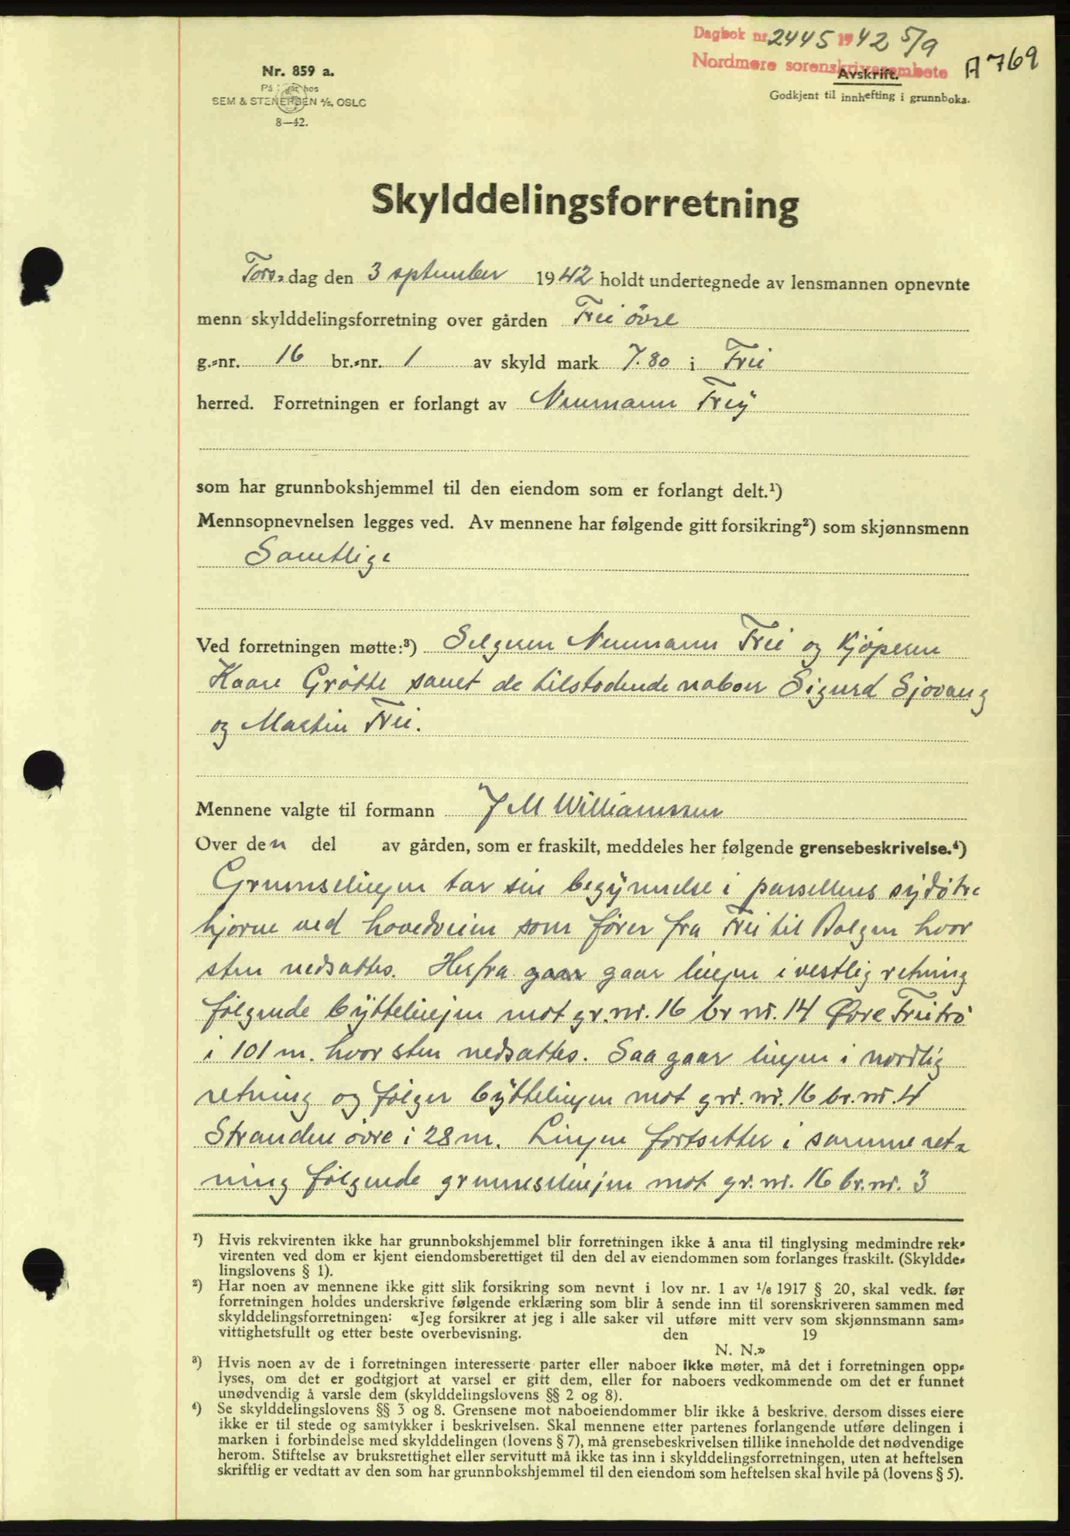 Dagbok nr. 2445 1942 5/9
Nordmøre sorenskriverembete
A 769
Avskrift.
Godkjent til innhefting i grunnboka.
Nr. 859 a.
SEM & STENERSEN A/S, OSLO
8—42.
Skylddelingsforretning
Tors-dag den 3 sptember 1942 holdt undertegnede av lensmannen opnevnte
menn skylddelingsforretning over gården Frei övre
g.-nr. 16 br.-nr. 1 av skyld mark 7.80 i Frei
herred. Forretningen er forlangt av Neumann Frey
som har grunnbokshjemmel til den eiendom som er forlangt delt.¹)
Mennsopnevnelsen legges ved. Av mennene har følgende gitt forsikring²) som skjønnsmenn
Samtlige
Ved forretningen møtte:³) Selgeren Neumann Frei og Kjöperen
Kaare Grötte samt de tilstodende naboer Sigurd Sjovang
og Martin Frei.
Mennene valgte til formann J M Williamssen
Over den del av gården, som er fraskilt, meddeles her følgende grensebeskrivelse.⁴)
Grenselinjen tar sin begynnelse i parsellens sydöstre
hjorne ved hovedveien som förer fra Frei til Bolgen hvor
sten nedsattes. Herfra gaar gaar linjen i vestlig retning
følgende byttelinjen mot gr.nr. 16 br nr. 14 Øvre Freitrö
i 101 m. hvor sten nedsattes. Saa gaar linjen i nordlig
retning og følger byttelinjen mot gnr. nr. 16 br. nr. 4
Stranden övre i 28 m. Linjen fortsetter i samme ret-
ning følgende grenselinjen mot gr. nr. 16 br. nr. 3
¹) Hvis rekvirenten ikke har grunnbokshjemmel blir forretningen ikke å anta til tinglysing medmindre rek-
virenten ved dom er kjent eiendomsberettiget til den del av eiendommen som forlanges fraskilt. (Skyldde-
lingslovens § 1).
²) Har noen av mennene ikke gitt slik forsikring som nevnt i lov nr. 1 av 1/8 1917 § 20, skal vedk. før
forretningen holdes underskrive følgende erklæring som blir å sende inn til sorenskriveren sammen med
skylddelingsforretningen: «Jeg forsikrer at jeg i alle saker vil utføre mitt verv som skjønnsmann sam-
vittighetsfullt og etter beste overbevisning. den 19
N. N.»
³) Hvis noen av de i forretningen interesserte parter eller naboer ikke møter, må det i forretningen opp-
lyses, om det er godtgjort at varsel er gitt dem, eller for naboers vedkommende om det er funnet
unødvendig å varsle dem (skylddelingslovens §§ 2 og 8).
⁴) Se skylddelingslovens §§ 3 og 8. Grensene mot naboeiendommer blir ikke å beskrive, dersom disses eiere
ikke er til stede og samtykker i beskrivelsen. Skal mennene etter partenes forlangende utføre delingen i
marken i forbindelse med skylddelingen (lovens § 7), må grensebeskrivelsen tillike inneholde det nødvendige
herom. Stiftelse av bruksrettighet eller servitutt må ikke tas inn i skylddelingsforretningen, uten at heftelsen
skriftlig er vedtatt av den som har grunnbokshjemmel til den eiendom som heftelsen skal hvile på (lovens § 5).